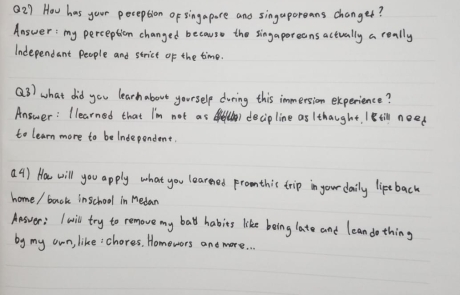 Q2) How has your peception of singapare and singaporeans changed?
Answer: my perception changed because the singaporeans actually a really
Independant people and strict of the time.
Q3) what did you learn about yourself during this immersion experience?
Answer: I learned that I'm not as decipline as I thaught. I still need
to learn more to be Independent.
Q4) How will you apply what you learned from this trip in your daily life back
home/back in school in Medan
Answer: I will try to remove my bad habits like being late and I can do thing
by my own, like: chores, Homewors and more...